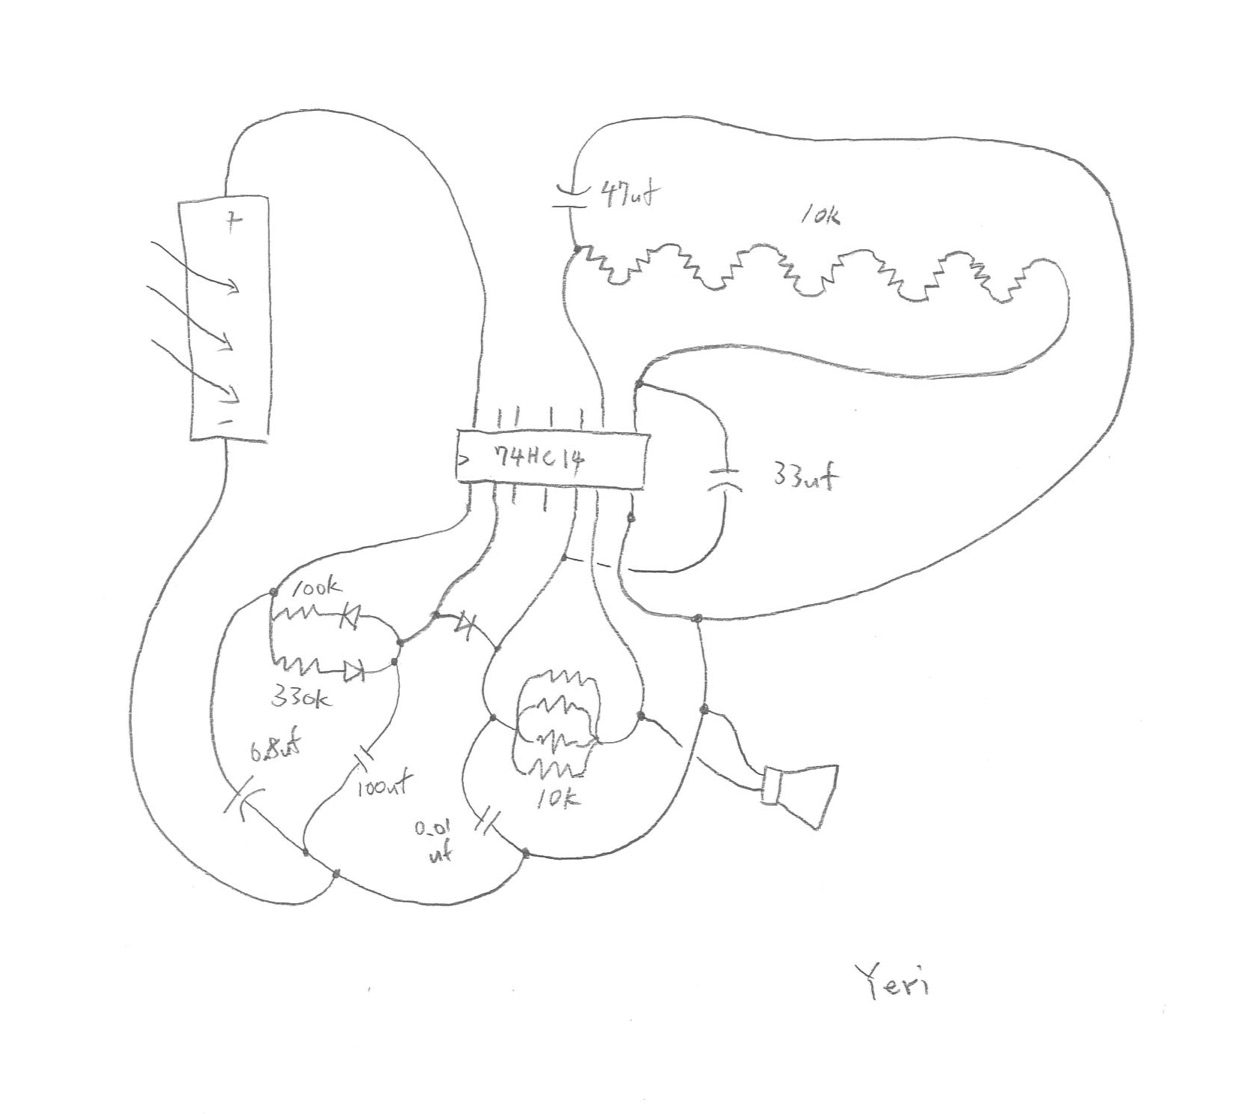 +
47uf
10k
-
74HC14
33uf
100k
330k
6.8uf
100uf
10k
0.01
uf
Yeri